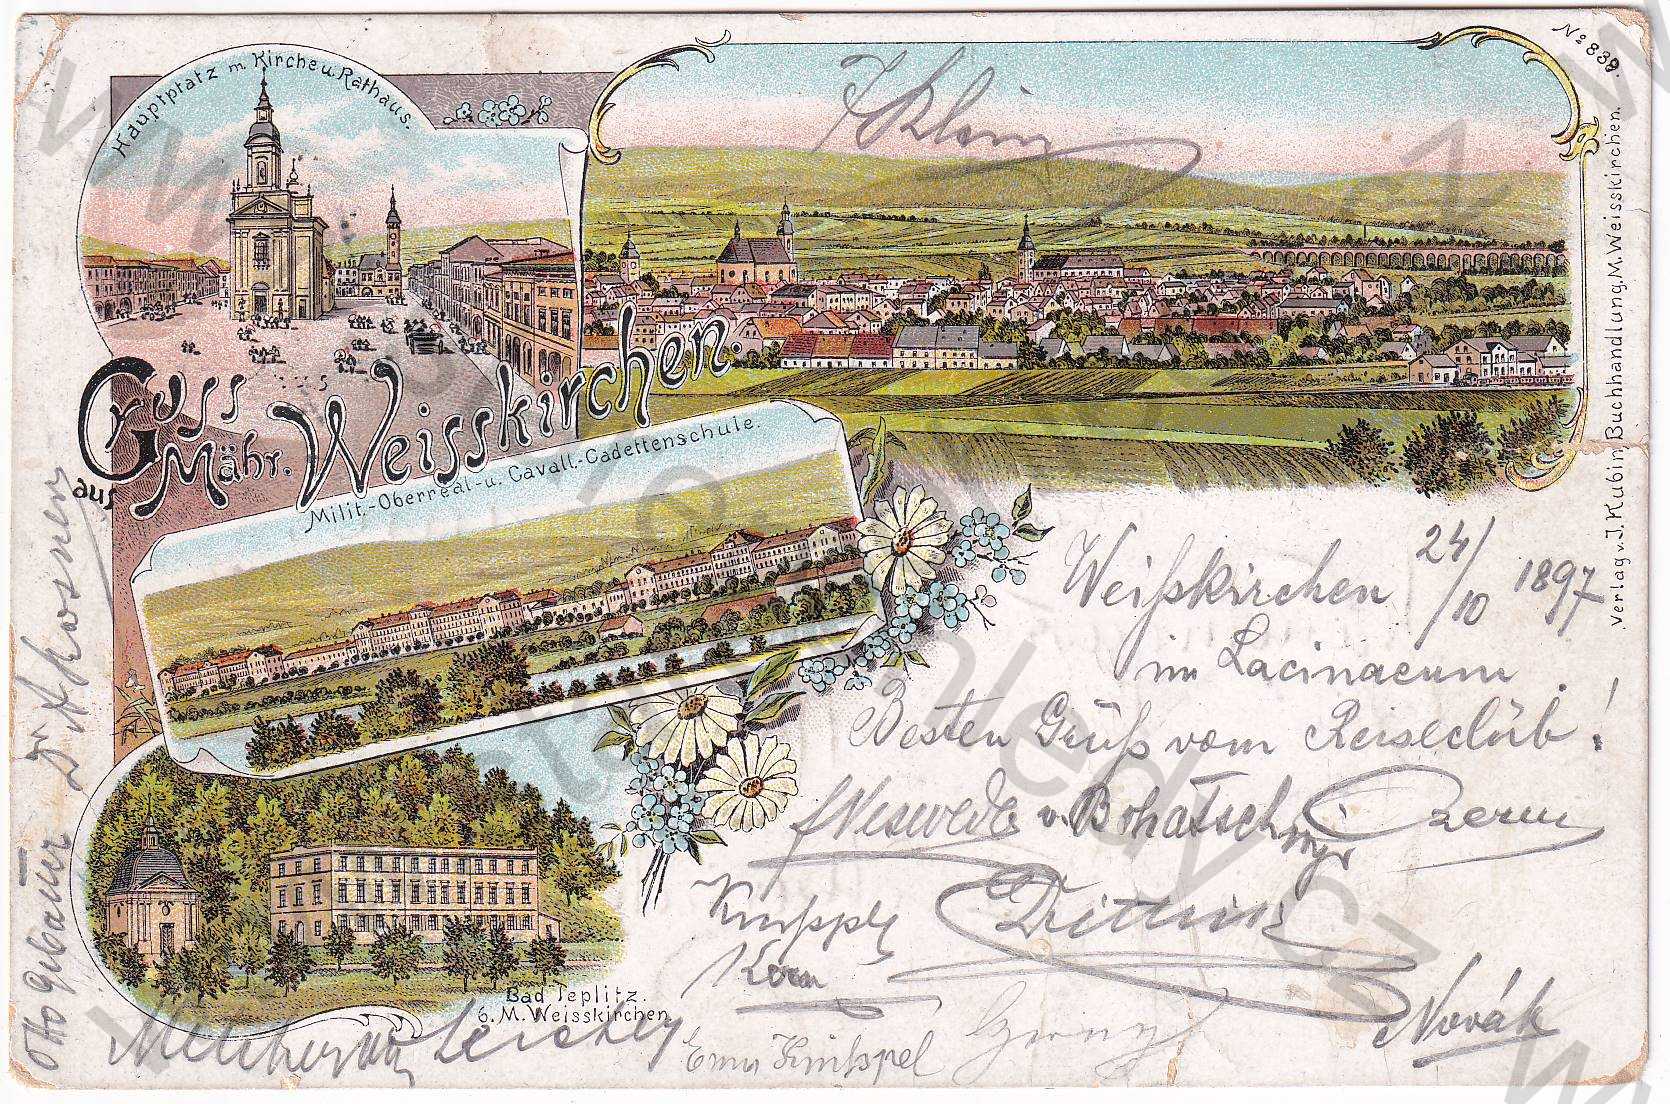 Hauptplatz m. Kirche u. Rathaus.
No 839.
Klein
Gruss
aus Mähr. Weisskirchen.
Milit.-Oberreal-u. Cavall.-Cadettenschule.
Verlag v. J. Kubin, Buchhandlung, M. Weisskirchen.
Weißkirchen 24/10 1897
im Lacinaeum.
Besten Gruß vom Reiseclub!
v. Bohatsch Czerny
Knippel Dittrich
Korn
Novák
Bad Teplitz.
b. M. Weisskirchen.
Knippel Czerny
Otto Gebauer Dr